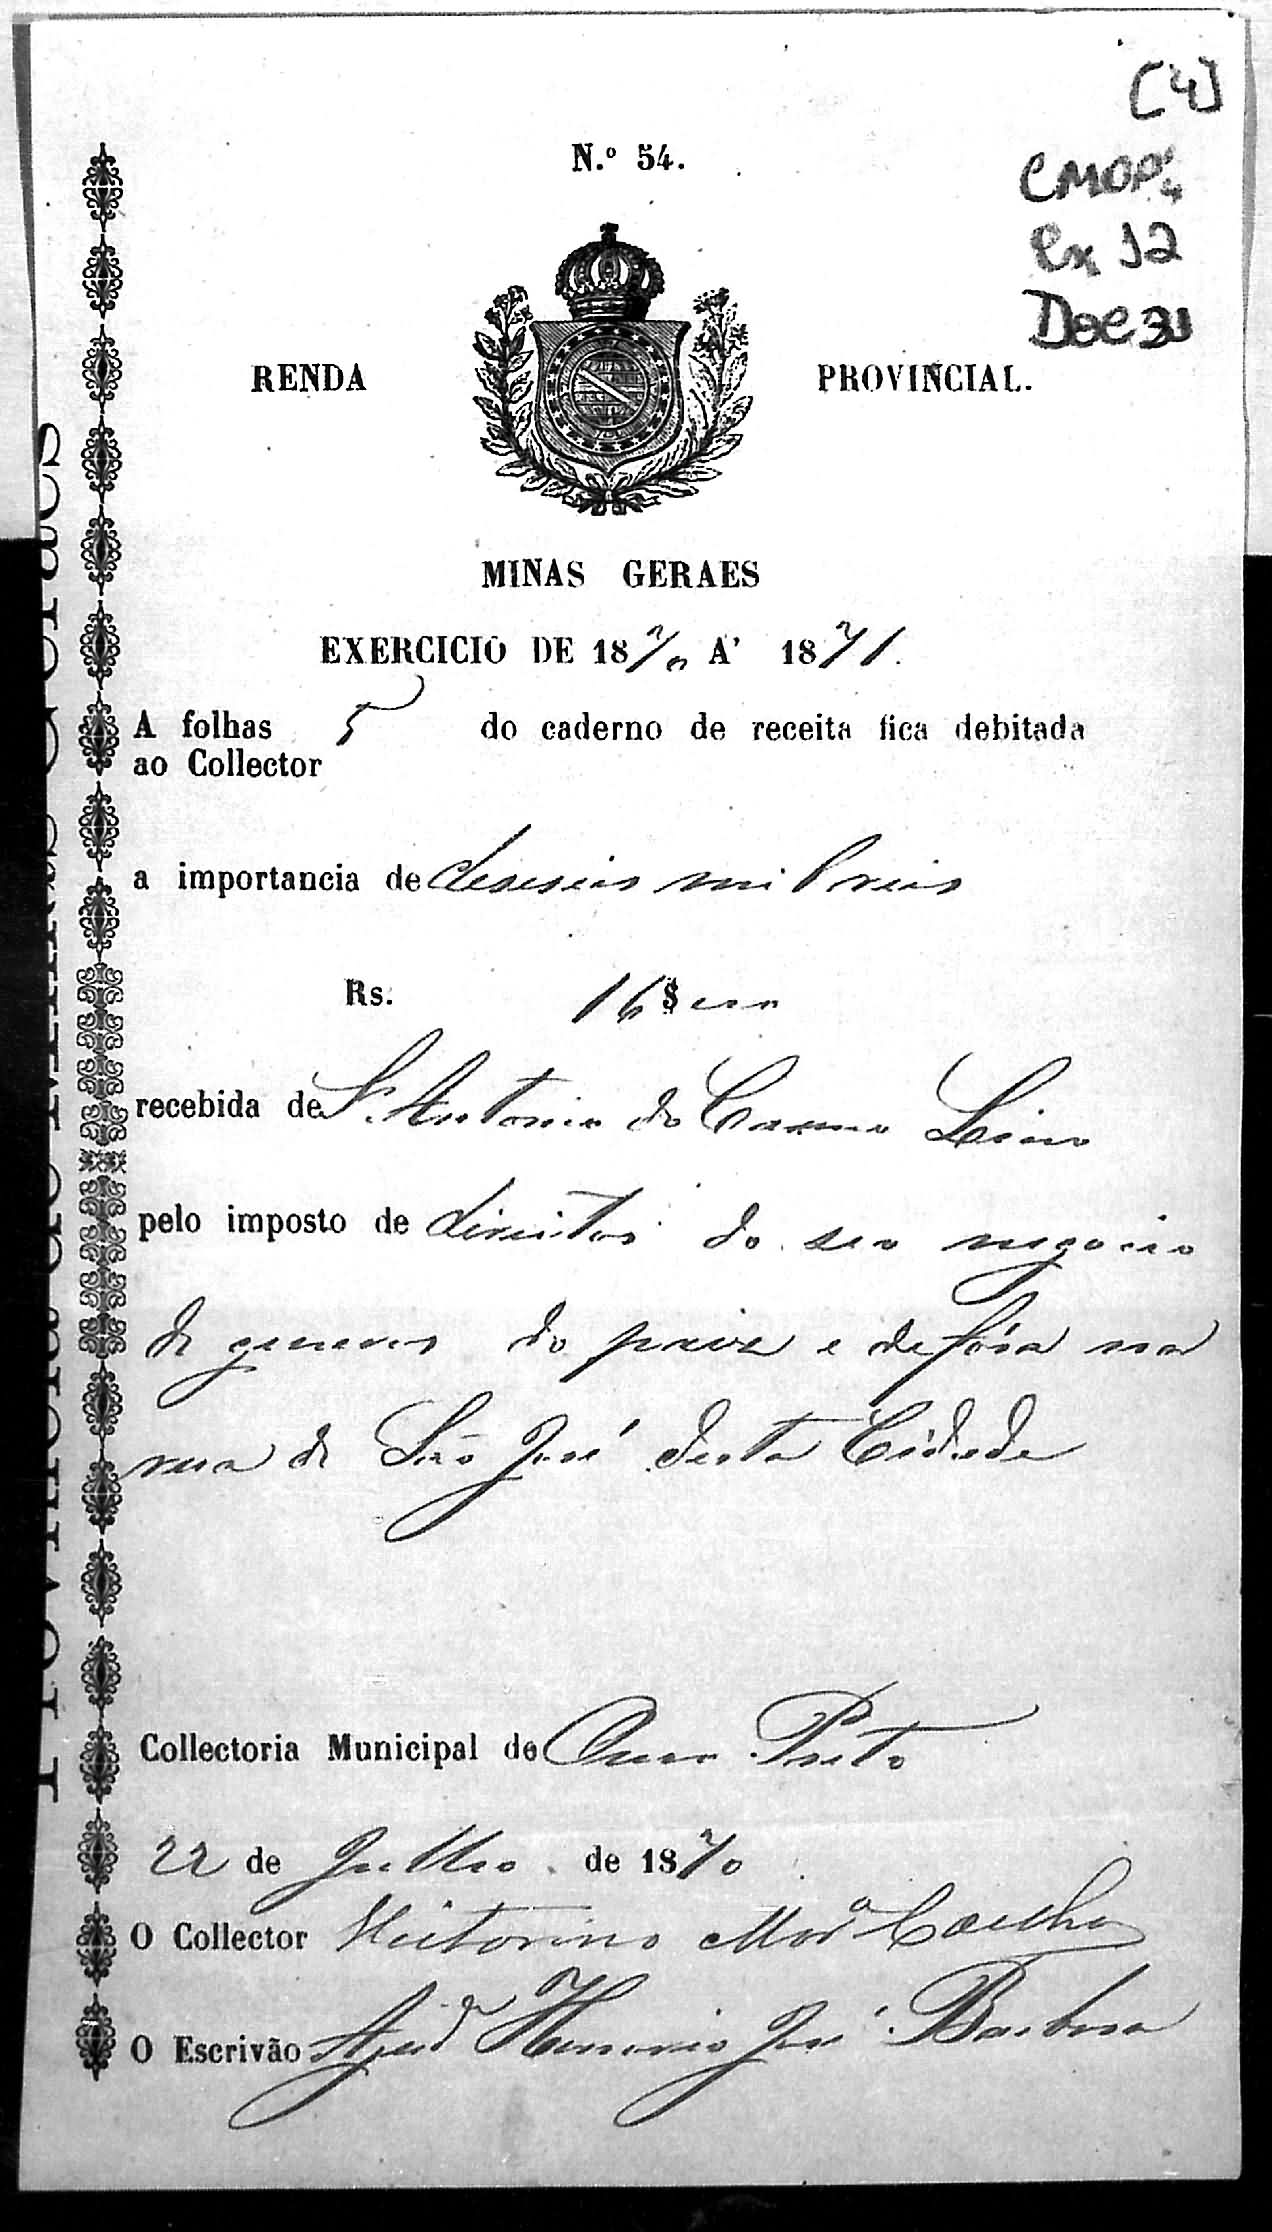 [4]
N.º 54.
CMOP
Cx 12
Doc 31
RENDA PROVINCIAL.
MINAS GERAES
EXERCICIO DE 1870 A' 1871.
A folhas 5 do caderno de receita fica debitada
ao Collector
a importancia de deseseis mil reis
Rs. 16$000
recebida de Sr. Antonio do Carmo
pelo imposto de direitos do seu negocio
de generos do paiz e de fóra na
rua de São José desta Cidade
Collectoria Municipal de Ouro Preto
22 de Julho de 1870
O Collector Victorino Coelho
O Escrivão Ajud.e Honorio José Barbosa
Provincia de Minas Geraes